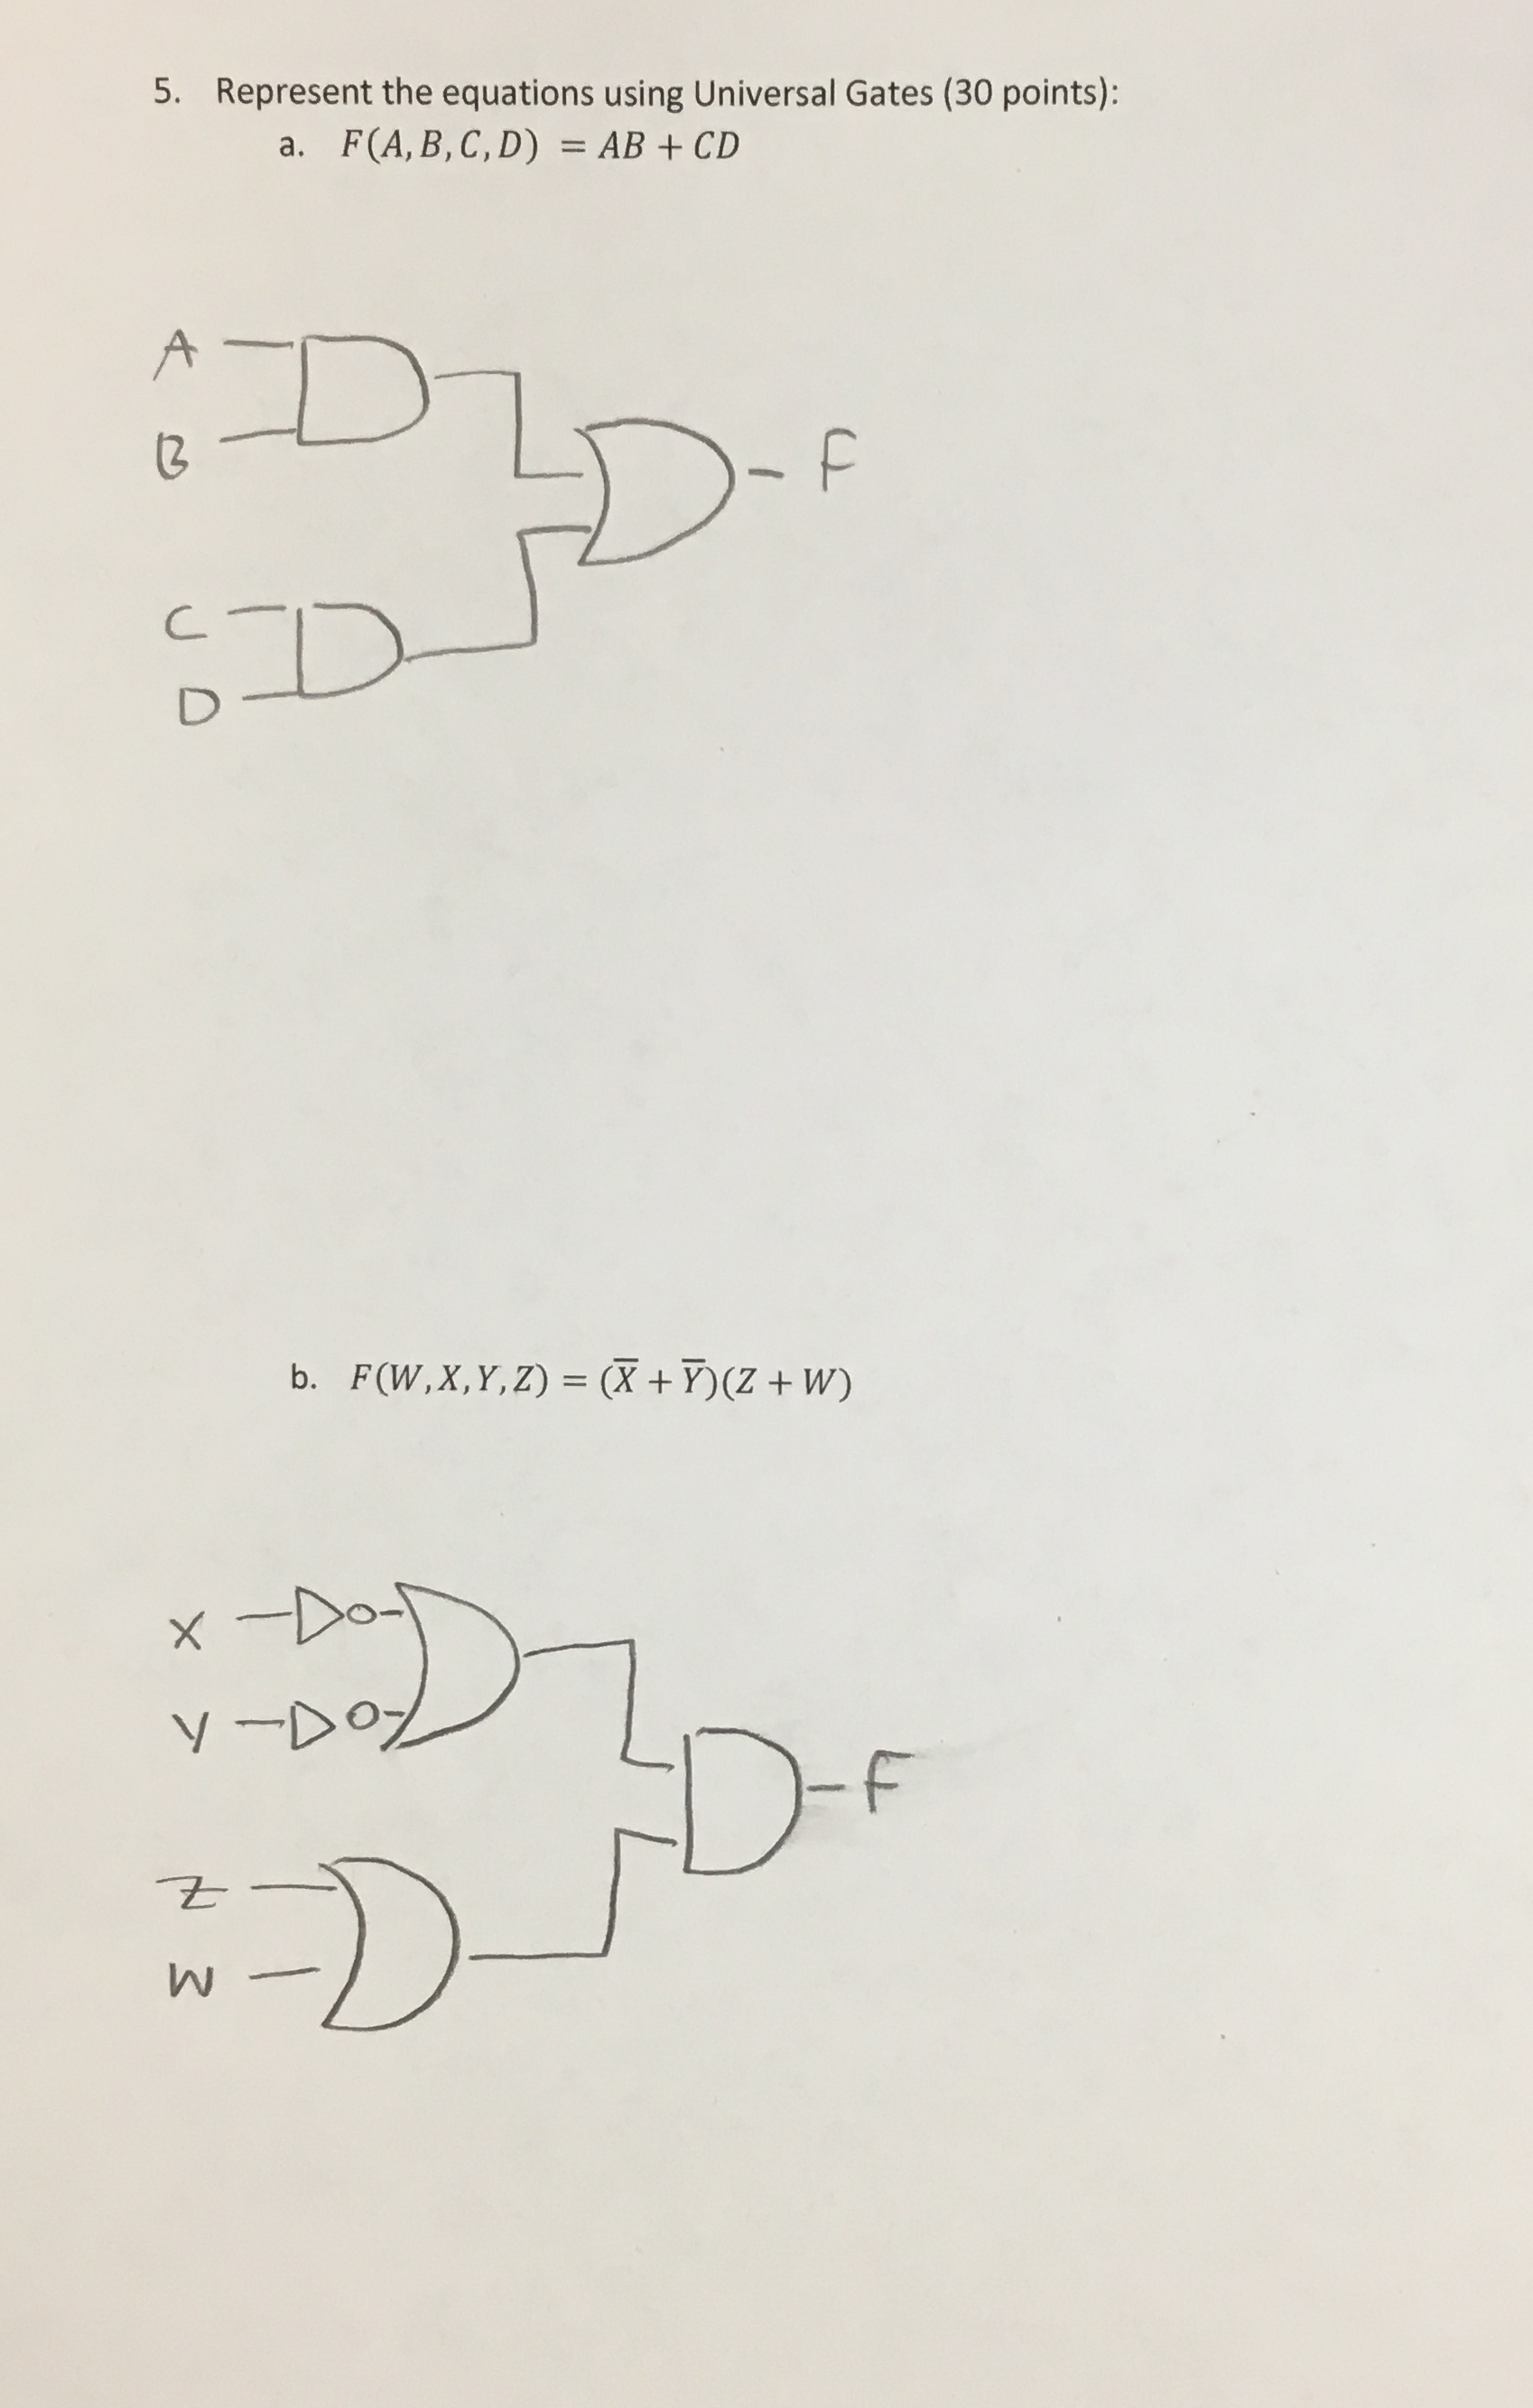 5. Represent the equations using Universal Gates (30 points):
a. F(A,B,C,D) = AB + CD
A
B
F
C
D
b. F(W,X,Y,Z) = (X̅ + Y̅)(Z + W)
X
Y
F
Z
W